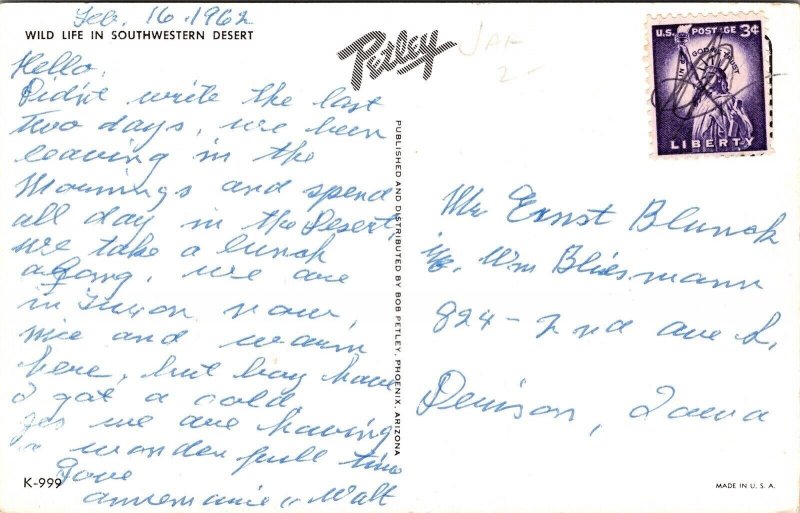 Feb. 16. 1962
WILD LIFE IN SOUTHWESTERN DESERT
Hello,
Didn't write the last
two days, we been
leaving in the
Mornings and spend
all day in the Desert,
we take a lunch
along, we are
in Tucson now,
nice and warm
here, but boy have
I got a cold,
yes we are having
a wonderfull time
Love
annemarie u Walt
K-999
Petley
PUBLISHED AND DISTRIBUTED BY BOB PETLEY, PHOENIX, ARIZONA
U.S. POSTAGE 3¢
IN GOD WE TRUST
LIBERTY
Mr Ernst Blunck
c/o Wm Bliesmann
824 - 2nd ave S.
Denison, Iowa
MADE IN U.S.A.